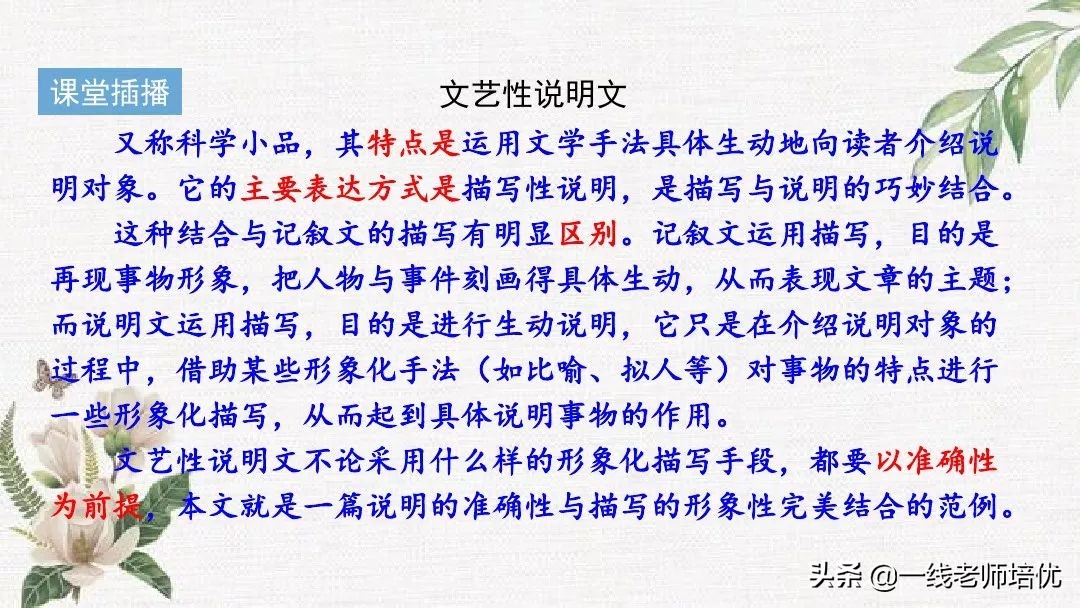 课堂插播
文艺性说明文
又称科学小品，其特点是运用文学手法具体生动地向读者介绍说
明对象。它的主要表达方式是描写性说明，是描写与说明的巧妙结合。
这种结合与记叙文的描写有明显区别。记叙文运用描写，目的是
再现事物形象，把人物与事件刻画得具体生动，从而表现文章的主题；
而说明文运用描写，目的是进行生动说明，它只是在介绍说明对象的
过程中，借助某些形象化手法（如比喻、拟人等）对事物的特点进行
一些形象化描写，从而起到具体说明事物的作用。
文艺性说明文不论采用什么样的形象化描写手段，都要以准确性
为前提，本文就是一篇说明的准确性与描写的形象性完美结合的范例。
头条 @一线老师培优